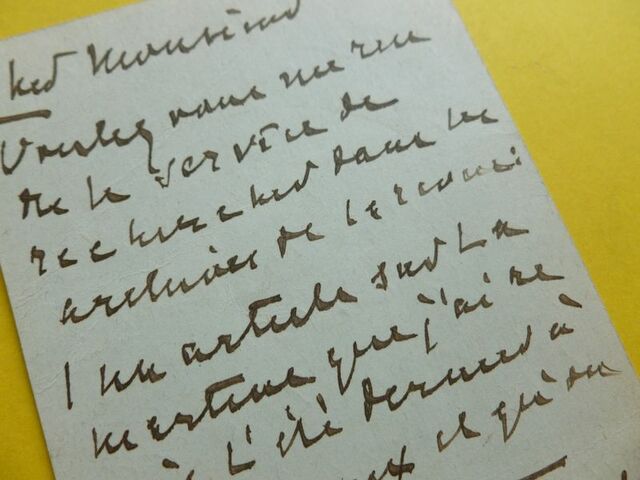 cher Monsieur
Voulez vous me ren
dre le service de
rechercher dans les
archives de
un article sur La
que j'ai re
à l'été dernier à
et qu'on